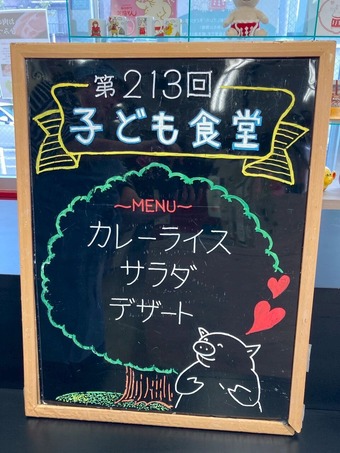 第213回
子ども食堂
～MENU～
カレーライス
サラダ
デザート